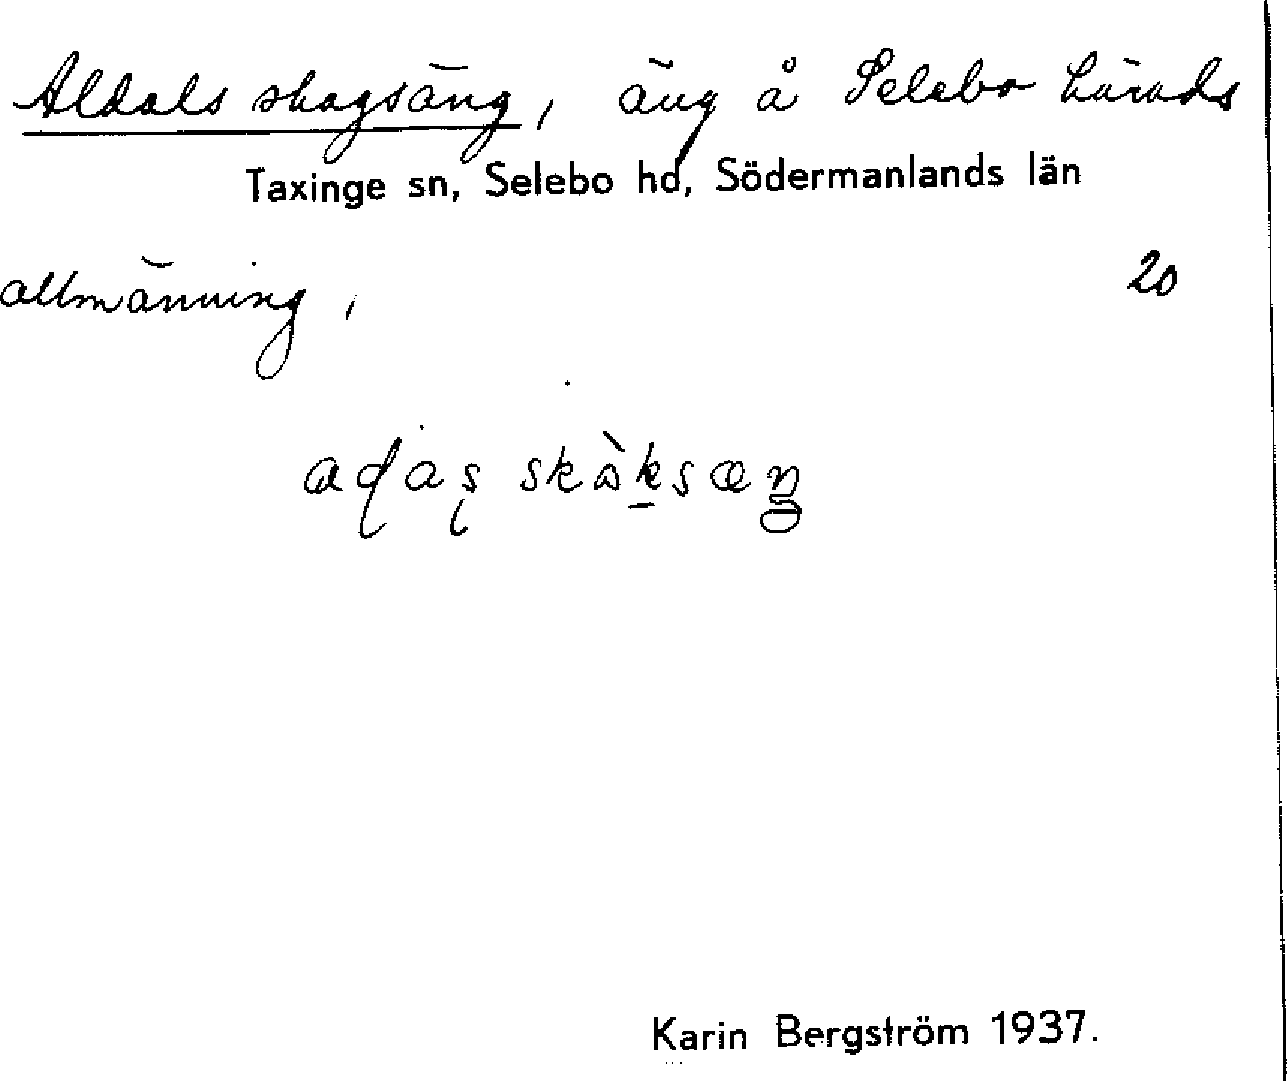 Aldals skogsäng, äng å Selebo härads
Taxinge sn, Selebo hd, Södermanlands län
allmänning, 20
Karin Bergström 1937.